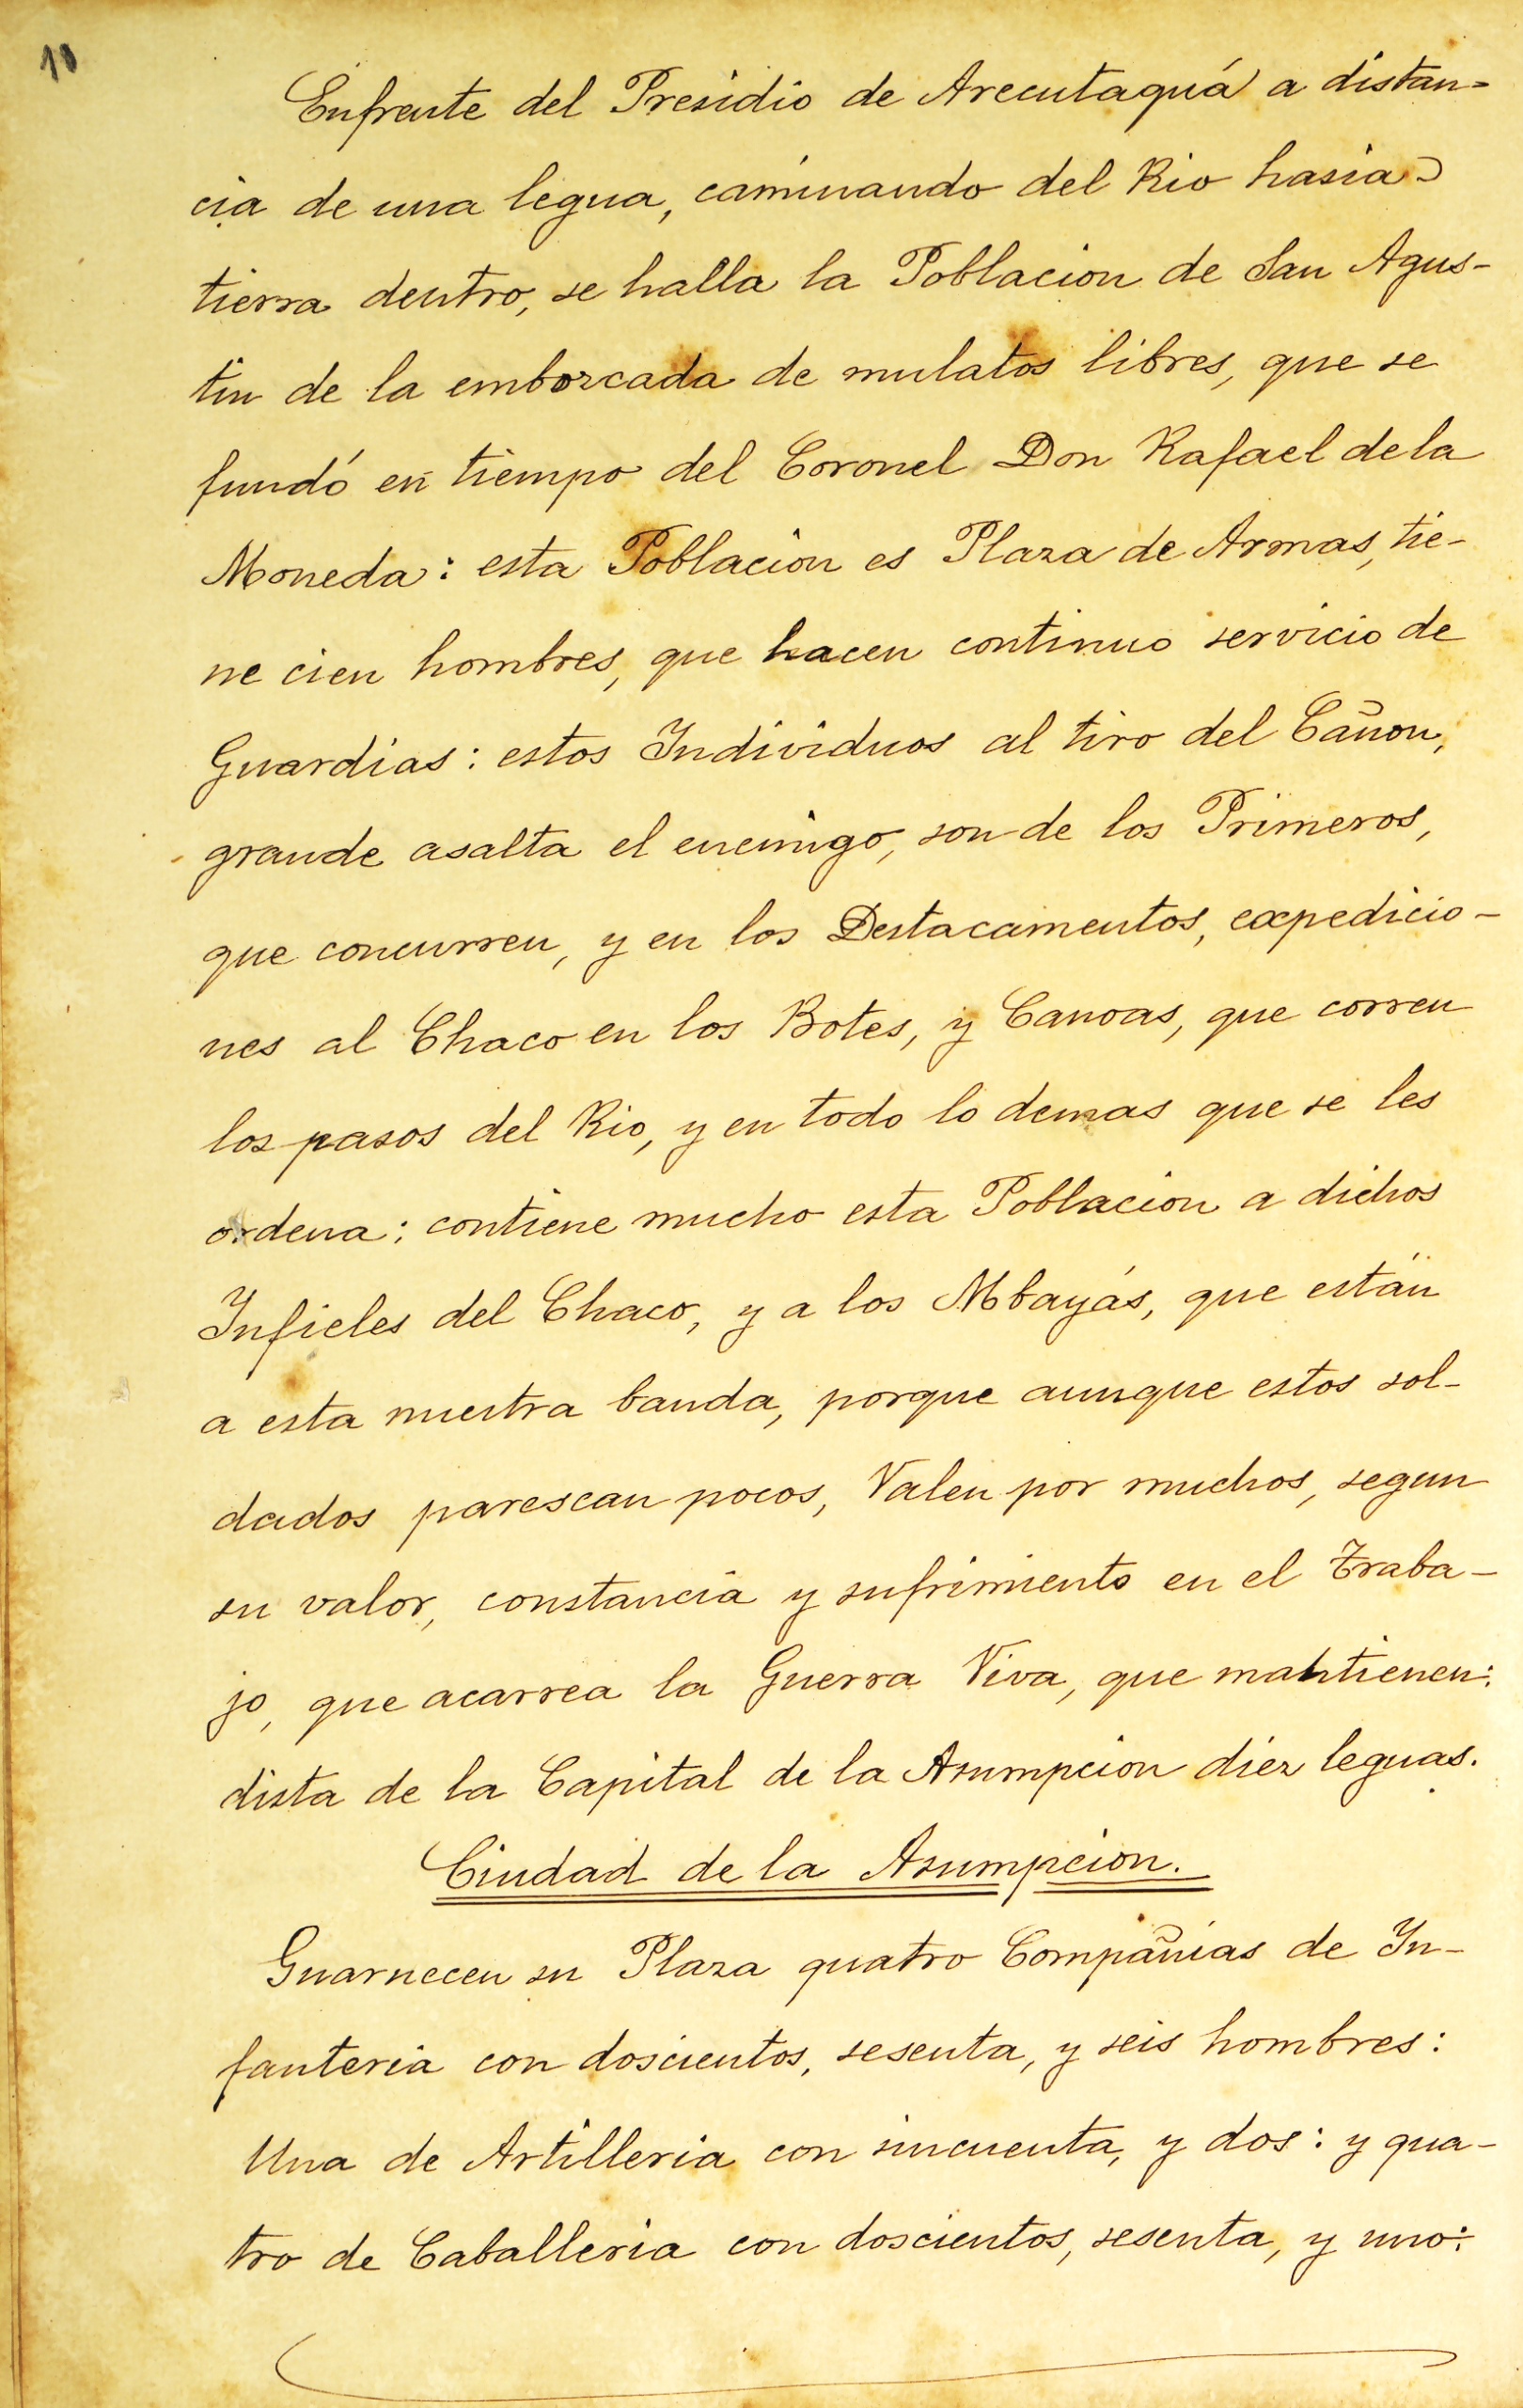 10
Enfrente del Presidio de Arecutaquá a distan=
cia de una legua, caminando del Rio hasia
tierra dentro, se halla la Poblacion de San Agus-
tin de la emborcada de mulatos libres, que se
fundó en tiempo del Coronel Don Rafael de la
Moneda: esta Poblacion es Plaza de Armas, tie-
ne cien hombres, que hacen continuo servicio de
Guardias: estos Individuos al tiro del Cañon,
grande asalta el enemigo, son de los Primeros,
que concurren, y en los Destacamentos, expedicio-
nes al Chaco en los Botes, y Canoas, que corren
los pasos del Rio, y en todo lo demas que se les
ordena: contiene mucho esta Poblacion a dichos
Infieles del Chaco, y a los Mbayás, que están
a esta nuestra banda, porque aunque estos sol-
dados parescan pocos, Valen por muchos, segun
su valor, constancia y sufrimiento en el traba-
jo, que acarrea la Guerra Viva, que mantienen:
dista de la Capital de la Asumpcion diez leguas.
Ciudad de la Asumpcion.
Guarnecen su Plaza quatro Compañias de In-
fanteria con doscientos, sesenta, y seis hombres:
Una de Artilleria con sincuenta, y dos: y qua-
tro de Caballeria con doscientos, sesenta, y uno: